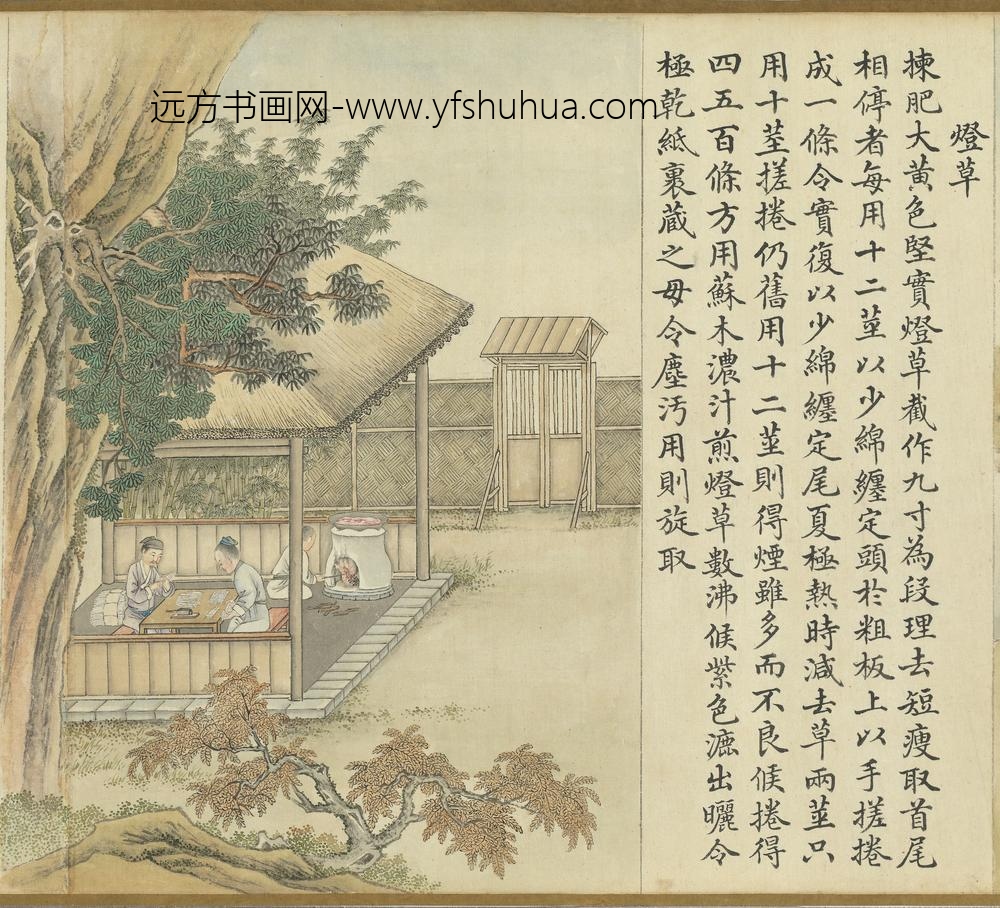 燈草
揀肥大黃色堅實燈草截作九寸為段理去短瘦取首尾
相停者每用十二莖以少綿纏定頭於粗板上以手搓捲
成一條令實復以少綿纏定尾夏極熱時減去草兩莖只
用十莖搓捲仍舊用十二莖則得煙雖多而不良候捲得
四五百條方用蘇木濃汁煎燈草數沸候紫色漉出曬令
極乾紙裹藏之毋令塵汚用則旋取
远方书画网-www.yfshuhua.com